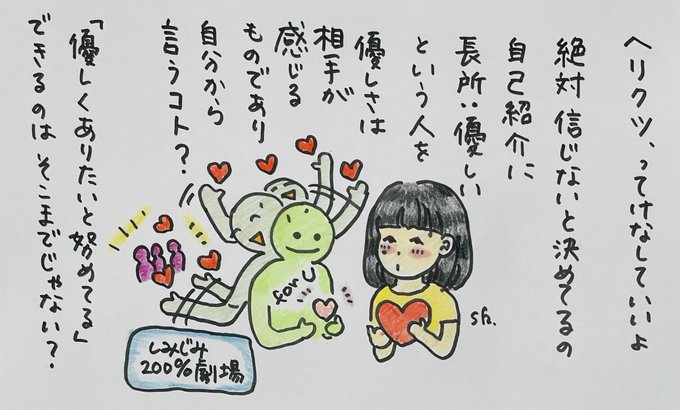 ヘリクツ、ってけなしていいよ
絶対信じないと決めてるの
自己紹介に
長所:優しい
という人を
優しさは
相手が
感じる
ものであり
自分から
言うコト?
「優しくありたいと努めてる」
できるのはそこまでじゃない?
for U
sh.
しみじみ
200%劇場